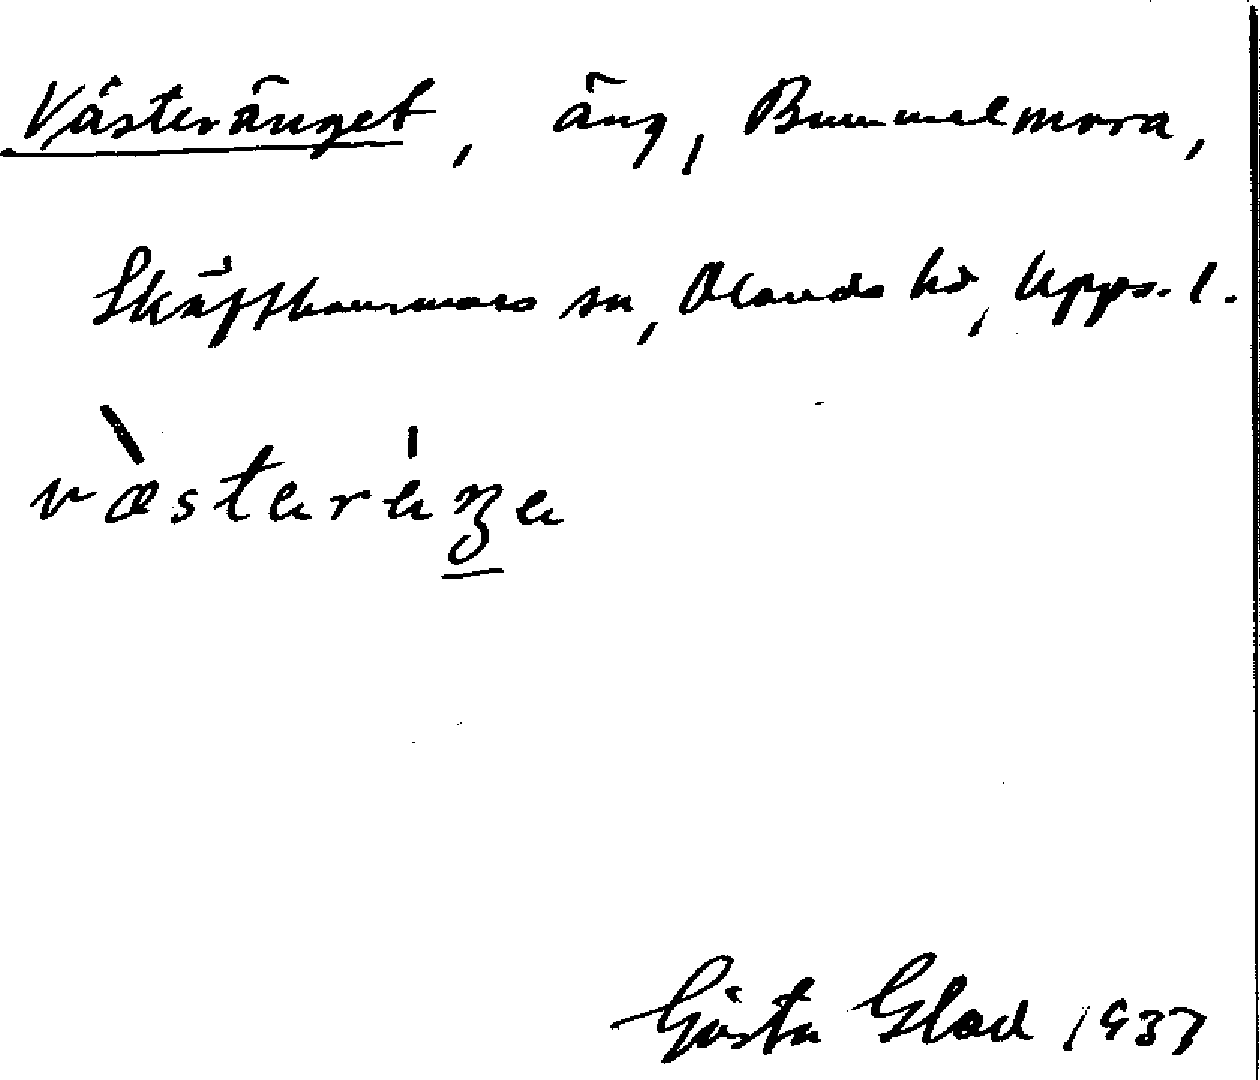 Västeränget, äng, Bummelmora,
Skäfthammars sn, Olands hd, Upps. l.
væsteräŋe
Gösta Glad 1937